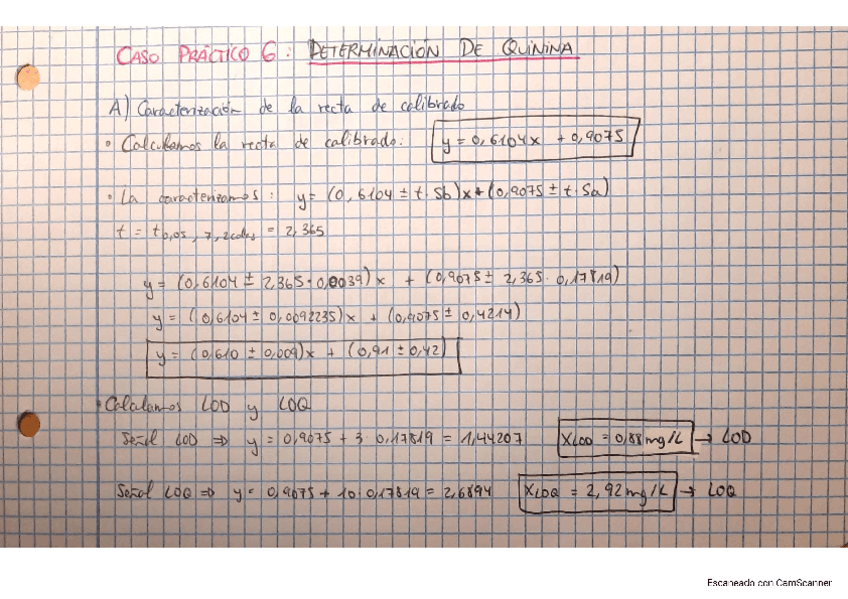 CASO PRÁCTICO 6: DETERMINACIÓN DE QUININA
A) Caracterización de la recta de calibrado
• Calculamos la recta de calibrado: y = 0,6104x + 0,9075
• La caracterizamos: y = (0,6104 ± t·Sb)x + (0,9075 ± t·Sa)
t = t0,05, 7, 2colas = 2,365
y = (0,6104 ± 2,365·0,0039)x + (0,9075 ± 2,365·0,17819)
y = (0,6104 ± 0,0092235)x + (0,9075 ± 0,4214)
y = (0,610 ± 0,009)x + (0,91 ± 0,42)
• Calculamos LOD y LOQ
Señal LOD ⇒ y = 0,9075 + 3·0,17819 = 1,44207 XLOD = 0,88 mg/L → LOD
Señal LOQ ⇒ y = 0,9075 + 10·0,17819 = 2,6894 XLOQ = 2,92 mg/L → LOQ
Escaneado con CamScanner